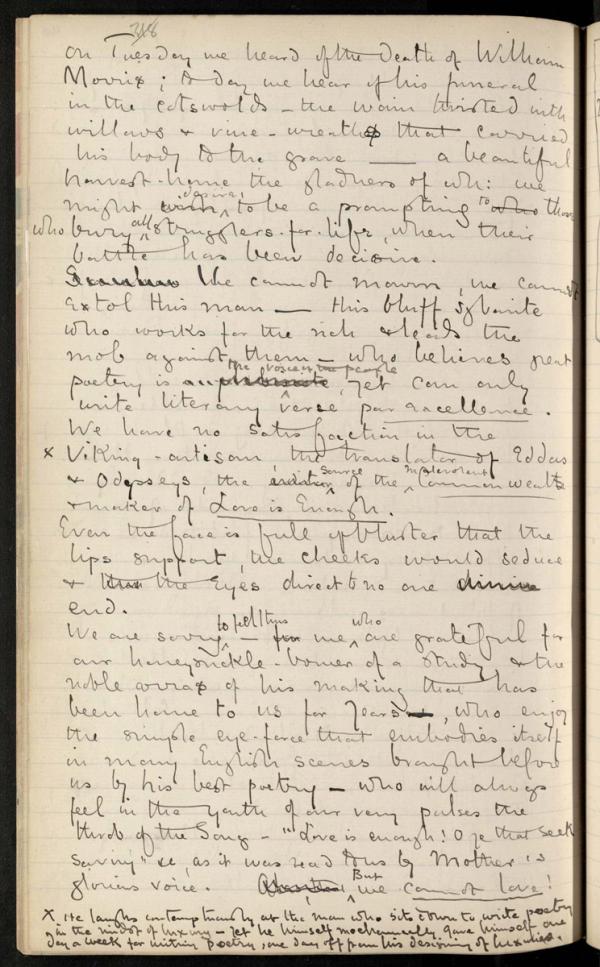 318
On Tuesday we heard of the Death of William
Morris; to day we hear of his funeral
in the cotswolds – the wain twisted with
willows & vine-wreaths that carried
his body to the grave — a beautiful
harvest-home the gladness of wh: we
might wish desire, to be a prompting to who those
who bury all strugglers-for-life, when their
battle has been decisive.
We cannot mourn, we cannot
extol this man — this bluff sybarite
who works for the rich & leads the
mob against them – who believes great
poetry is the voice of the people, yet can only
write literary verse par excellence.
We have no satisfaction in the
x Viking-artisan, the translator of Eddas
& Odysseys, the source of the malevolent Commonwealth
& maker of Love is Enough.
Even the face is full of bluster that the
lips support, the cheeks would seduce
& the eyes direct to no one divine
end.
We are sorry to feel thus – for we who are grateful for
our honeysuckle-bower of a study & the
noble arras of his making that has
been home to us for years, who enjoy
the simple eye-force that embodies itself
in many English scenes brought before
us by his best poetry – who will always
feel in the youth of our very pulses the
throb of the Song – "Love is enough! O ye that seek
saving" &c, as it was read to us by Mother's
glorious voice. But we cannot love!
X. He laughs contemptuously at the man who sits down to write poetry
in the midst of luxury – yet he himself mechanically gave himself one
day a week for writing poetry, one day off from his designing of luxuries.